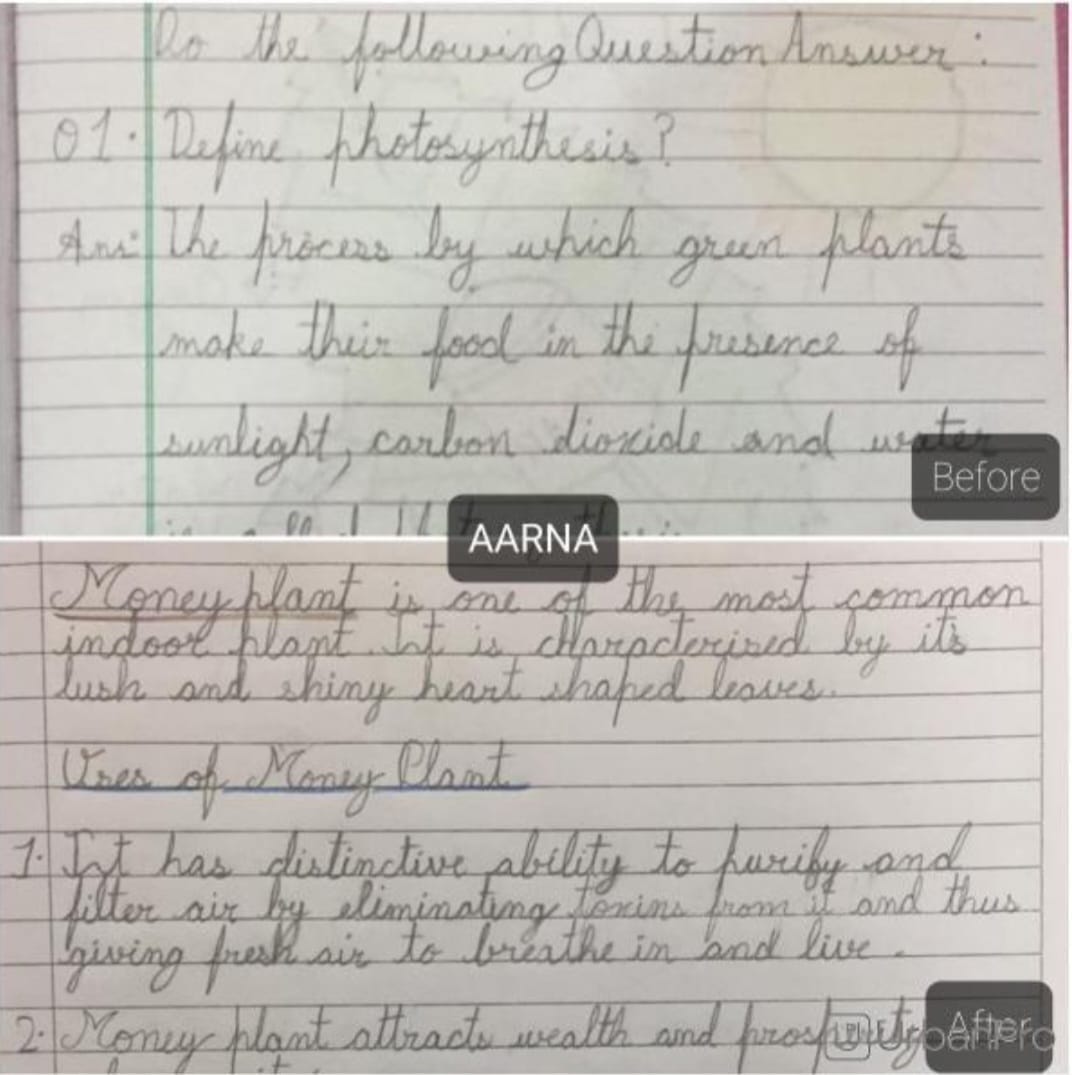 Do the following Question Answer :
Q1. Define photosynthesis?
Ans: The process by which green plants
make their food in the presence of
sunlight, carbon dioxide and water
Before
AARNA
Money plant is one of the most common
indoor plant. It is characterised by its
lush and shiny heart shaped leaves.
Uses of Money Plant
1. It has distinctive ability to purify and
filter air by eliminating toxins from it and thus
giving fresh air to breathe in and live.
2. Money plant attracts wealth and prosperity
After
UrbanPro